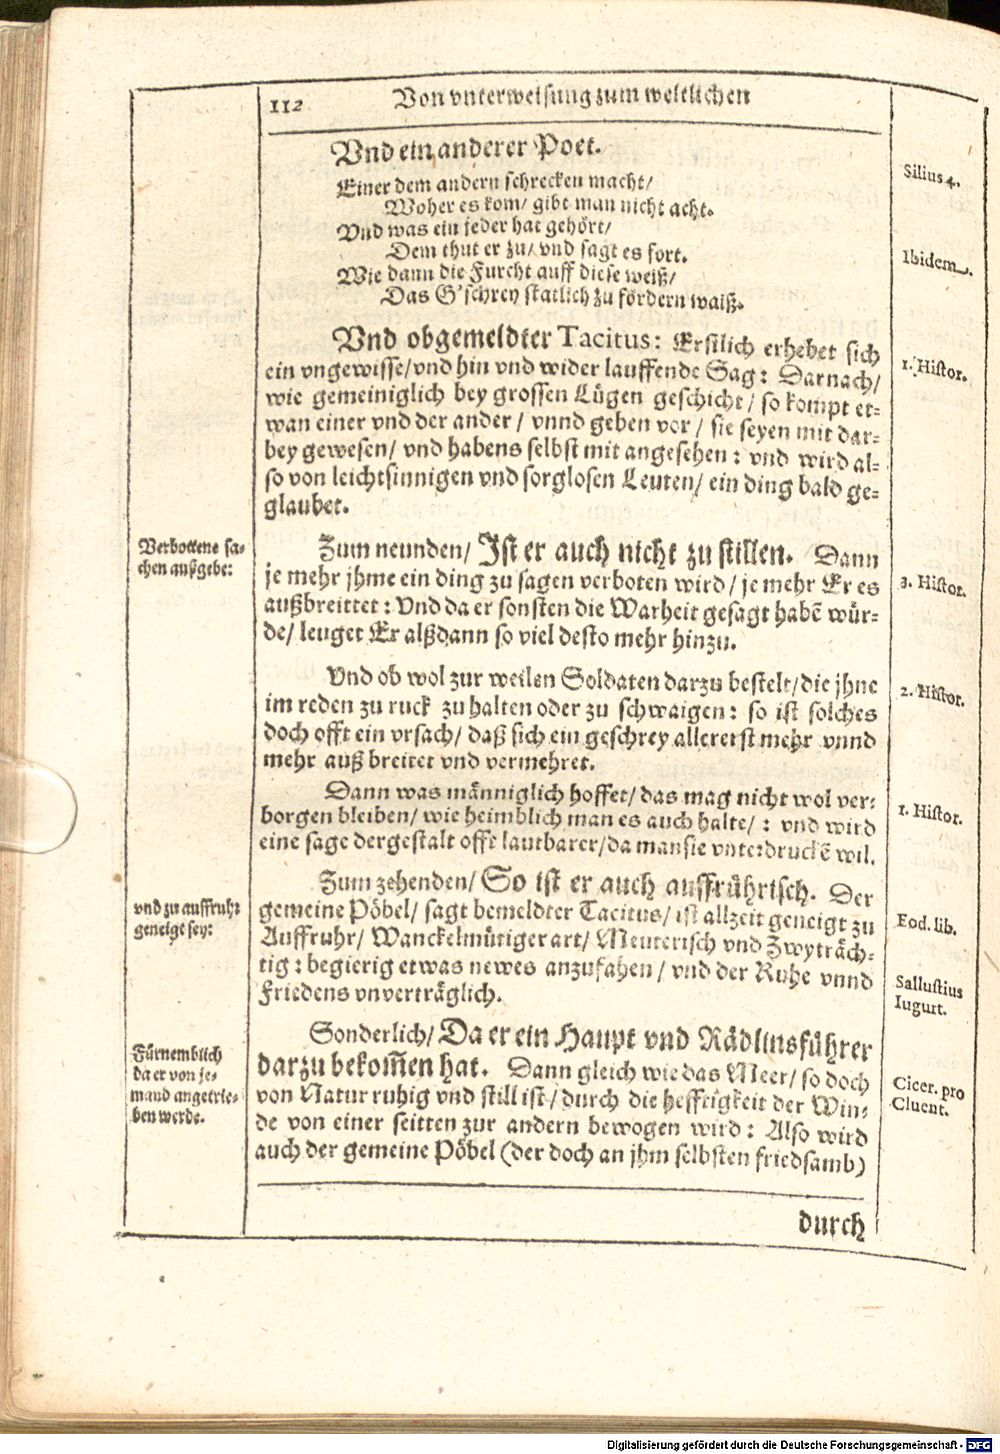 112 Von vnterweisung zum weltlichen
Vnd ein anderer Poet.
Einer dem andern schrecken macht/
Woher es kom/ gibt man nicht acht.
Vnd was ein jeder hat gehört/
Dem thut er zu/ vnd sagt es fort.
Wie dann die Furcht auff diese weiß/
Das G'schrey statlich zu fördern waiß.
Silius 4.
Ibidem.
Vnd obgemeldter Tacitus: Erstlich erhebet sich
ein vngewisse/ vnd hin vnd wider lauffende Sag: Darnach/
wie gemeiniglich bey grossen Lügen geschicht/ so kompt et-
wan einer vnd der ander/ vnnd geben vor/ sie seyen mit dar-
bey gewesen/ vnd habens selbst mit angesehen: vnd wird al-
so von leichtsinnigen vnd sorglosen Leuten/ ein ding bald ge-
glaubet.
1. Histor.
Verbottene sa-
chen außgebe:
Zum neunden/ Ist er auch nicht zu stillen. Dann
je mehr jhme ein ding zu sagen verboten wird/ je mehr Er es
außbreittet: Vnd da er sonsten die Warheit gesagt habẽ wür-
de/ leuget Er alßdann so viel desto mehr hinzu.
3. Histor.
Vnd ob wol zur weilen Soldaten darzu bestelt/ die jhne
im reden zu ruck zu halten oder zu schwaigen: so ist solches
doch offt ein vrsach/ daß sich ein geschrey allererst mehr vnnd
mehr auß breitet vnd vermehret.
2. Histor.
Dann was männiglich hoffet/ das mag nicht wol ver-
borgen bleiben/ wie heimblich man es auch halte/: vnd wird
eine sage dergestalt offt lautbarer/ da man sie vnterdruckẽ wil.
1. Histor.
vnd zu auffruhr
geneigt sey:
Zum zehenden/ So ist er auch auffrührisch. Der
gemeine Pöbel/ sagt bemeldter Tacitus/ ist allzeit geneigt zu
Auffruhr/ Wanckelmütiger art/ Meuterisch vnd Zwyträch-
tig: begierig etwas newes anzufahen/ vnd der Ruhe vnnd
Friedens vnverträglich.
Eod. lib.
Sallustius
Iugurt.
Fürnemblich
da er von je-
mand angetrie-
ben werde.
Sonderlich/ Da er ein Haupt vnd Rädlinsführer
darzu bekom̃en hat. Dann gleich wie das Meer/ so doch
von Natur ruhig vnd still ist/ durch die hefftigkeit der Win-
de von einer seitten zur andern bewogen wird: Also wird
auch der gemeine Pöbel (der doch an jhm selbsten friedsamb)
Cicer. pro
Cluent.
durch
Digitalisierung gefördert durch die Deutsche Forschungsgemeinschaft - DFG